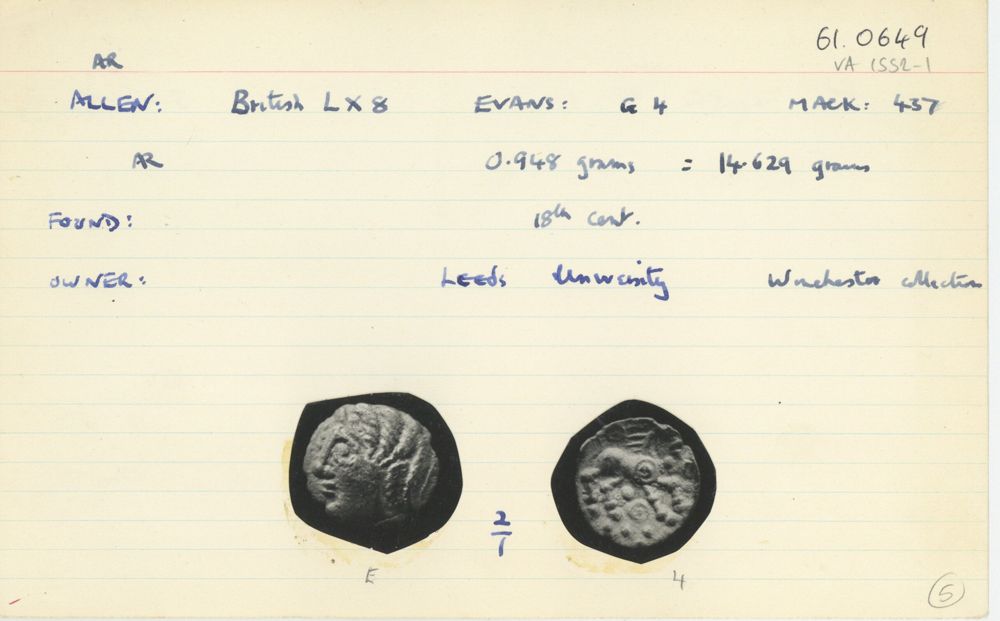 61.0649
AR
VA 1552-1
ALLEN: British LX8 EVANS: G 4 MACK: 437
AR 0.948 grams = 14.629 grains
FOUND: 18th cent.
OWNER: LEEDS University Winchester collection
2
1
E 4
5